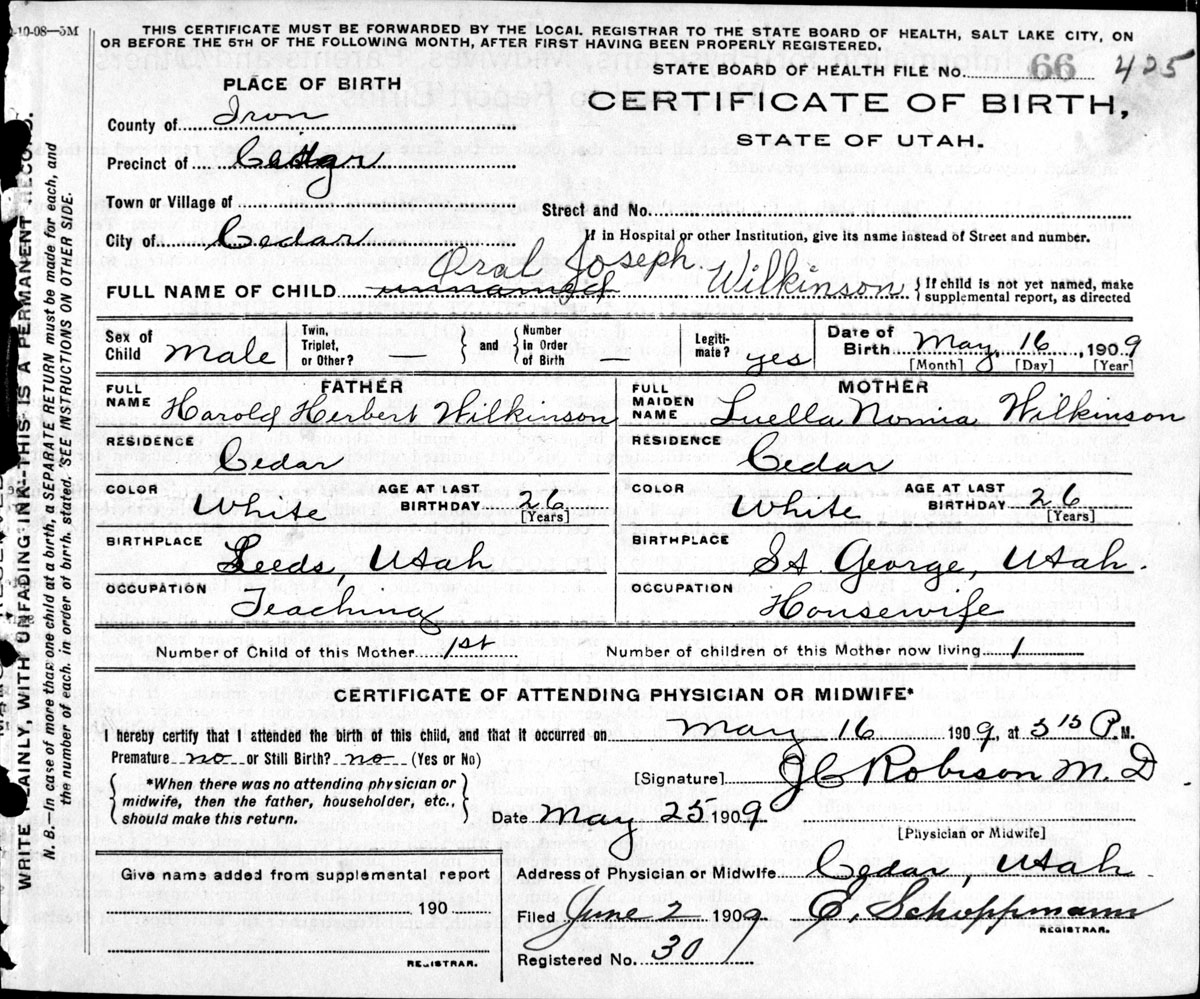 -10-08—5M
THIS CERTIFICATE MUST BE FORWARDED BY THE LOCAL REGISTRAR TO THE STATE BOARD OF HEALTH, SALT LAKE CITY, ON
OR BEFORE THE 5TH OF THE FOLLOWING MONTH, AFTER FIRST HAVING BEEN PROPERLY REGISTERED.
STATE BOARD OF HEALTH FILE NO. 66 425
PLACE OF BIRTH
CERTIFICATE OF BIRTH,
STATE OF UTAH.
County of Iron
Precinct of Cedar
Town or Village of
Street and No.
City of Cedar
If in Hospital or other Institution, give its name instead of Street and number.
Oral Joseph
FULL NAME OF CHILD unnamed Wilkinson { If child is not yet named, make supplemental report, as directed
Sex of Child Male Twin, Triplet, or Other? — } and { Number in Order of Birth — Legitimate? yes Date of Birth May 16, 1909
[Month] [Day] [Year]
FATHER
FULL NAME Harold Herbert Wilkinson
RESIDENCE
Cedar
COLOR White AGE AT LAST BIRTHDAY 26 [Years]
BIRTHPLACE
Leeds, Utah
OCCUPATION
Teaching
MOTHER
FULL MAIDEN NAME Luella Nomia Wilkinson
RESIDENCE
Cedar
COLOR White AGE AT LAST BIRTHDAY 26 [Years]
BIRTHPLACE
St George, Utah.
OCCUPATION
Housewife
Number of Child of this Mother 1st Number of children of this Mother now living 1
CERTIFICATE OF ATTENDING PHYSICIAN OR MIDWIFE*
I hereby certify that I attended the birth of this child, and that it occurred on May 16 1909, at 5 15 P. M.
Premature no or Still Birth? no (Yes or No)
{ *When there was no attending physician or
midwife, then the father, householder, etc.,
should make this return. }
[Signature] J C Robison M. D
Date May 25 1909
[Physician or Midwife]
Give name added from supplemental report
190
REGISTRAR.
Address of Physician or Midwife Cedar, Utah
Filed June 2 1909 E. Schoppmann
REGISTRAR.
Registered No. 30
WRITE PLAINLY, WITH UNFADING INK—THIS IS A PERMANENT RECORD.
N. B.—In case of more than one child at a birth, a SEPARATE RETURN must be made for each, and
the number of each, in order of birth, stated. SEE INSTRUCTIONS ON OTHER SIDE.